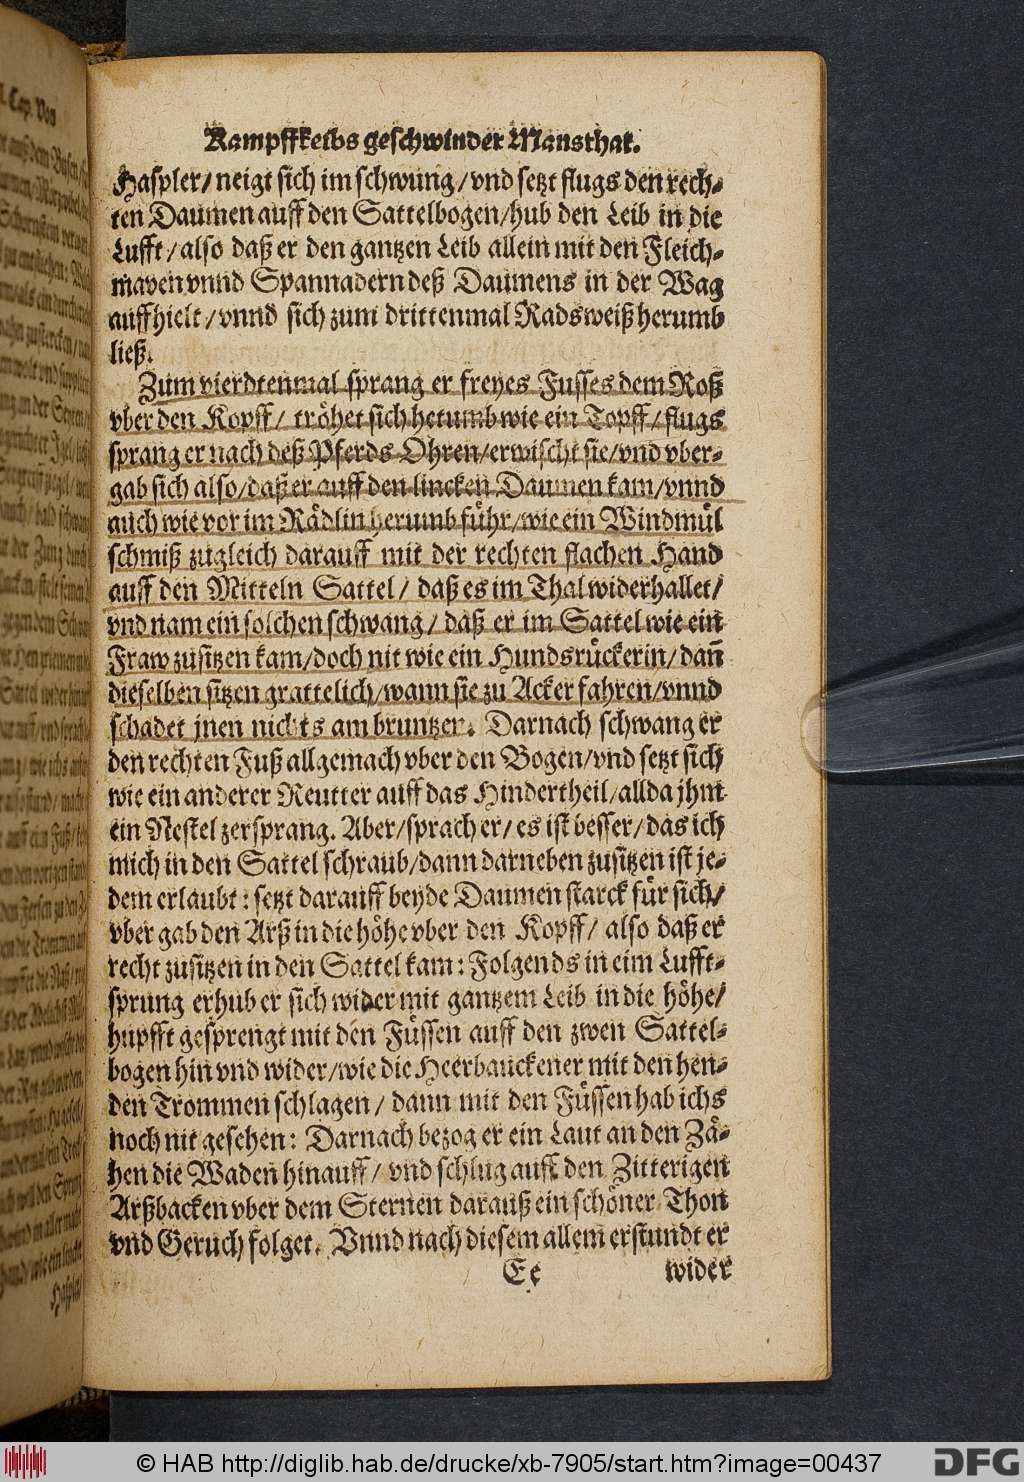 Kampffkeibs geschwinder Mansthat.
Haspler/ neigt sich im schwung/ vnd setzt flugs den rech-
ten Daumen auff den Sattelbogen/ hub den Leib in die
Lufft/ also daß er den gantzen Leib allein mit den Fleich-
mäven vnnd Spannadern deß Daumens in der Wag
auffhielt/ vnnd sich zum drittenmal Radsweiß herumb
ließ.
Zum vierdtenmal sprang er freyes Fusses dem Roß
vber den Kopff/ tröhet sich herumb wie ein Topff/ flugs
sprang er nach deß Pferds Ohren/ erwischt sie/ vnd vber-
gab sich also/ daß er auff den lincken Daumen kam/ vnnd
auch wie vor im Rädlin herumb führ/ wie ein Windmül
schmiß zugleich darauff mit der rechten flachen Hand
auff den Mitteln Sattel/ daß es im Thal widerhallet/
vnd nam ein solchen schwang/ daß er im Sattel wie ein
Fraw zusitzen kam/ doch nit wie ein Hundsrückerin/ dañ
dieselben sitzen grattelich/ wann sie zu Acker fahren/ vnnd
schadet jnen nichts am bruntzen. Darnach schwang er
den rechten Fuß allgemach vber den Bogen/ vnd setzt sich
wie ein anderer Reutter auff das Hindertheil/ allda jhm
ein Nestel zersprang. Aber/ sprach er/ es ist besser/ das ich
mich in den Sattel schraub/ dann darneben zusitzen ist je-
dem erlaubt: setzt darauff beyde Daumen starck für sich/
vber gab den Arß in die höhe vber den Kopff/ also daß er
recht zusitzen in den Sattel kam: Folgends in eim Lufft-
sprung erhub er sich wider mit gantzem Leib in die höhe/
hupfft gesprengt mit den Füssen auff den zwen Sattel-
bogen hin vnd wider/ wie die Heerbauckener mit den hen-
den Trommen schlagen/ dann mit den Füssen hab ichs
noch nit gesehen: Darnach bezog er ein Laut an den Zä-
hen die Waden hinauff/ vnd schlug auff den Zitterigen
Arßbacken vber dem Sternen darauß ein schöner Thon
vnd Geruch folget. Vnnd nach diesem allem erstundt er
Ee wider
© HAB http://diglib.hab.de/drucke/xb-7905/start.htm?image=00437
DFG